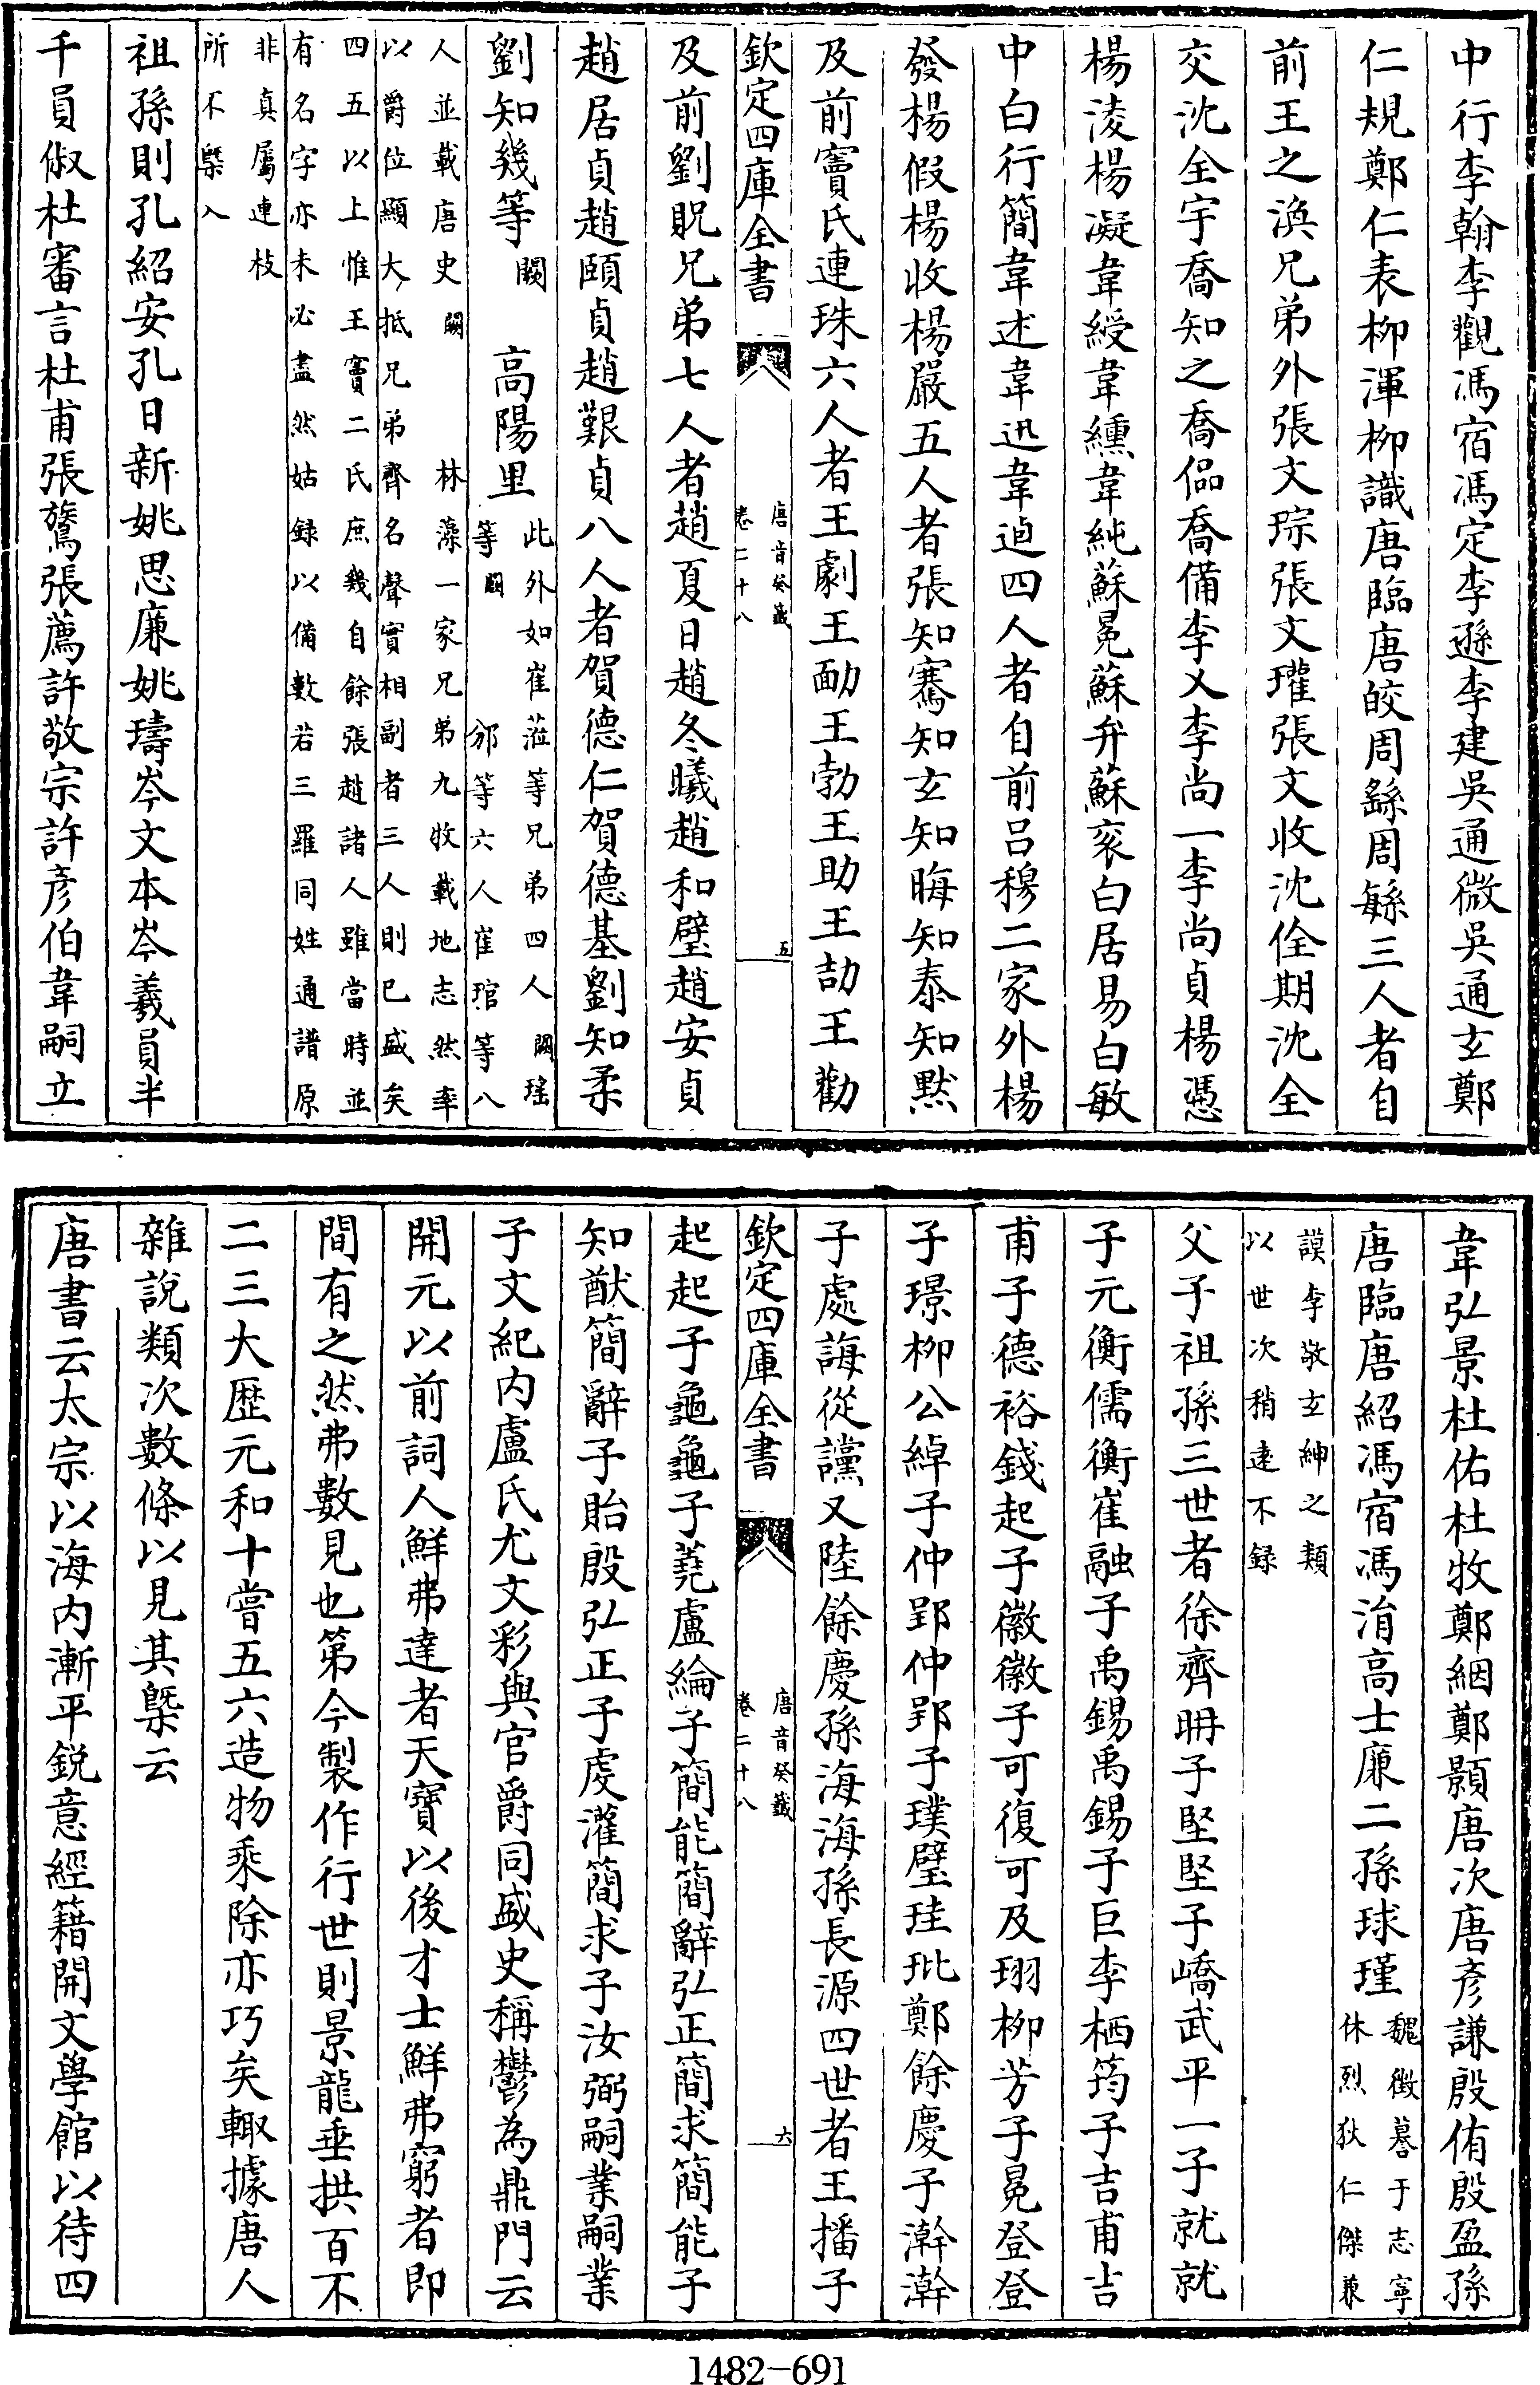 中行李翰李觀馮宿馮定李遜李建吳通微吳通玄鄭
仁規鄭仁表柳渾柳識唐臨唐皎周繇周繁三人者自
前王之渙兄弟外張文琮張文瓘張文收沈佺期沈全
交沈全宇喬知之喬侃喬備李乂李尚一李尚貞楊憑
楊淩楊凝韋綬韋纁韋純蘇冕蘇弁蘇衮白居易白敏
中白行簡韋述韋迅韋逌四人者自前呂穆二家外楊
發楊假楊收楊嚴五人者張知謇知玄知晦知泰知默
及前竇氏連珠六人者王勮王勔王勃王助王劼王勸
欽定四庫全書
唐音癸籤
卷二十八
五
及前劉貺兄弟七人者趙夏日趙冬曦趙和璧趙安貞
趙居貞趙頤貞趙艱貞八人者賀德仁賀德基劉知柔
劉知幾等闕 高陽里此外如崔蒞等兄弟四人闕瑤
等闕 邠等六人崔琯等八
人並載唐史闕 林藻一家兄弟九牧載地志然率
以爵位顯大抵兄弟齊名聲實相副者三人則已盛矣
四五以上惟王竇二氏庶幾自餘張趙諸人雖當時並
有名字亦未必盡然姑録以備數若三羅同姓通譜原
非真屬連枝
所不槩入
祖孫則孔紹安孔日新姚思廉姚璹岑文本岑羲員半
千員俶杜審言杜甫張鷟張薦許敬宗許彦伯韋嗣立
韋弘景杜佑杜牧鄭絪鄭顥唐次唐彦謙殷侑殷盈孫
唐臨唐紹馮宿馮涓高士廉二孫球瑾魏徵謩于志寧
休烈狄仁傑兼
謨李敬玄紳之類
以世次稍逺不録
父子祖孫三世者徐齊聃子堅堅子嶠武平一子就就
子元衡儒衡崔融子禹錫禹錫子巨李栖筠子吉甫吉
甫子德裕錢起子徽徽子可復可及珝柳芳子冕登登
子璟柳公綽子仲郢仲郢子璞璧珪玭鄭餘慶子澣澣
子處誨從讜又陸餘慶孫海海孫長源四世者王播子
欽定四庫全書
唐音癸籤
卷二十八
六
起起子龜龜子蕘盧綸子簡能簡辭弘正簡求簡能子
知猷簡辭子貽殷弘正子虔灌簡求子汝弼嗣業嗣業
子文紀内盧氏尤文彩與官爵同盛史稱鬱為鼎門云
開元以前詞人鮮弗達者天寶以後才士鮮弗窮者即
間有之然弗數見也第今製作行世則景龍垂拱百不
二三大歴元和十嘗五六造物乘除亦巧矣輙據唐人
雜說類次數條以見其槩云
唐書云太宗以海内漸平鋭意經籍開文學館以待四
1482-691